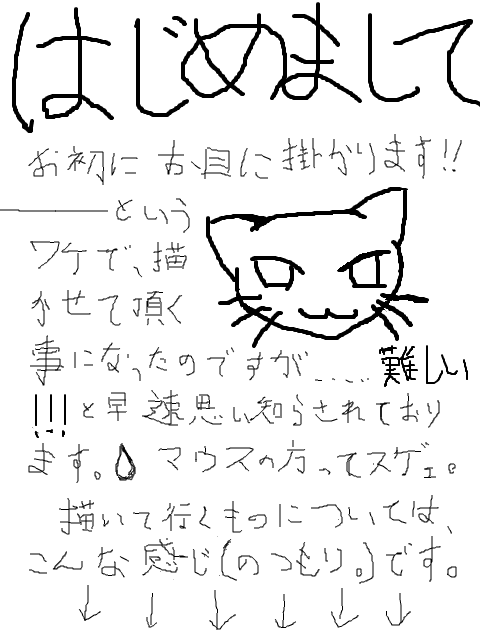 はじめまして
お初にお目に掛かります!!
――という
ワケで、描
かせて頂く
事になったのですが……難しい
!!!と早速思い知らされており
ます。マウスの方ってスゲェ。
描いて行くものについては、
こんな感じ(のつもり。)です。
↓ ↓ ↓ ↓ ↓ ↓